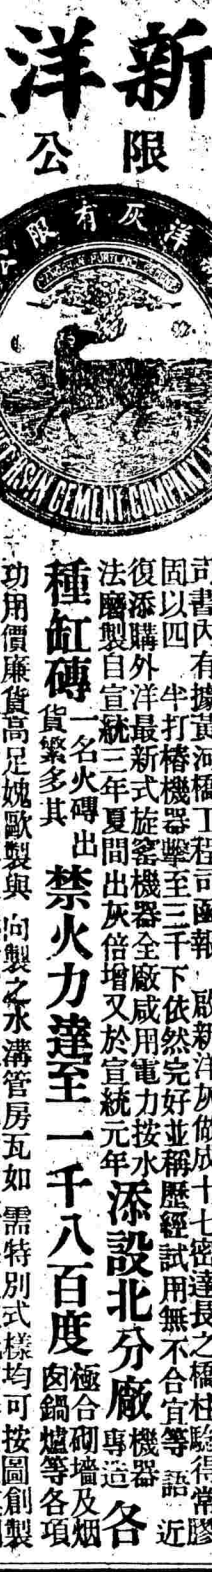 新洋
限公
洋灰有限公
PORTLAND
CEMENT COMPANY
司書內有據黃河橋工程司函報 啟新洋灰做成十七密達長之橋柱驗得常膠
固以四 半打樁機器擊至三千下依然完好並稱歷經試用無不合宜等語 近
復添購外洋最新式旋窰機器全廠咸用電力按水
法磨製自宣統三年夏間出灰倍增又於宣統元年添設北分廠機器專造各
種缸磚一名火磚出貨繁多其禁火力達至一千八百度極合砌墻及烟囱鍋爐等各項
功用價廉貨高足媿歐製與 向製之水溝管房瓦如 需特別式樣均可按圖創製